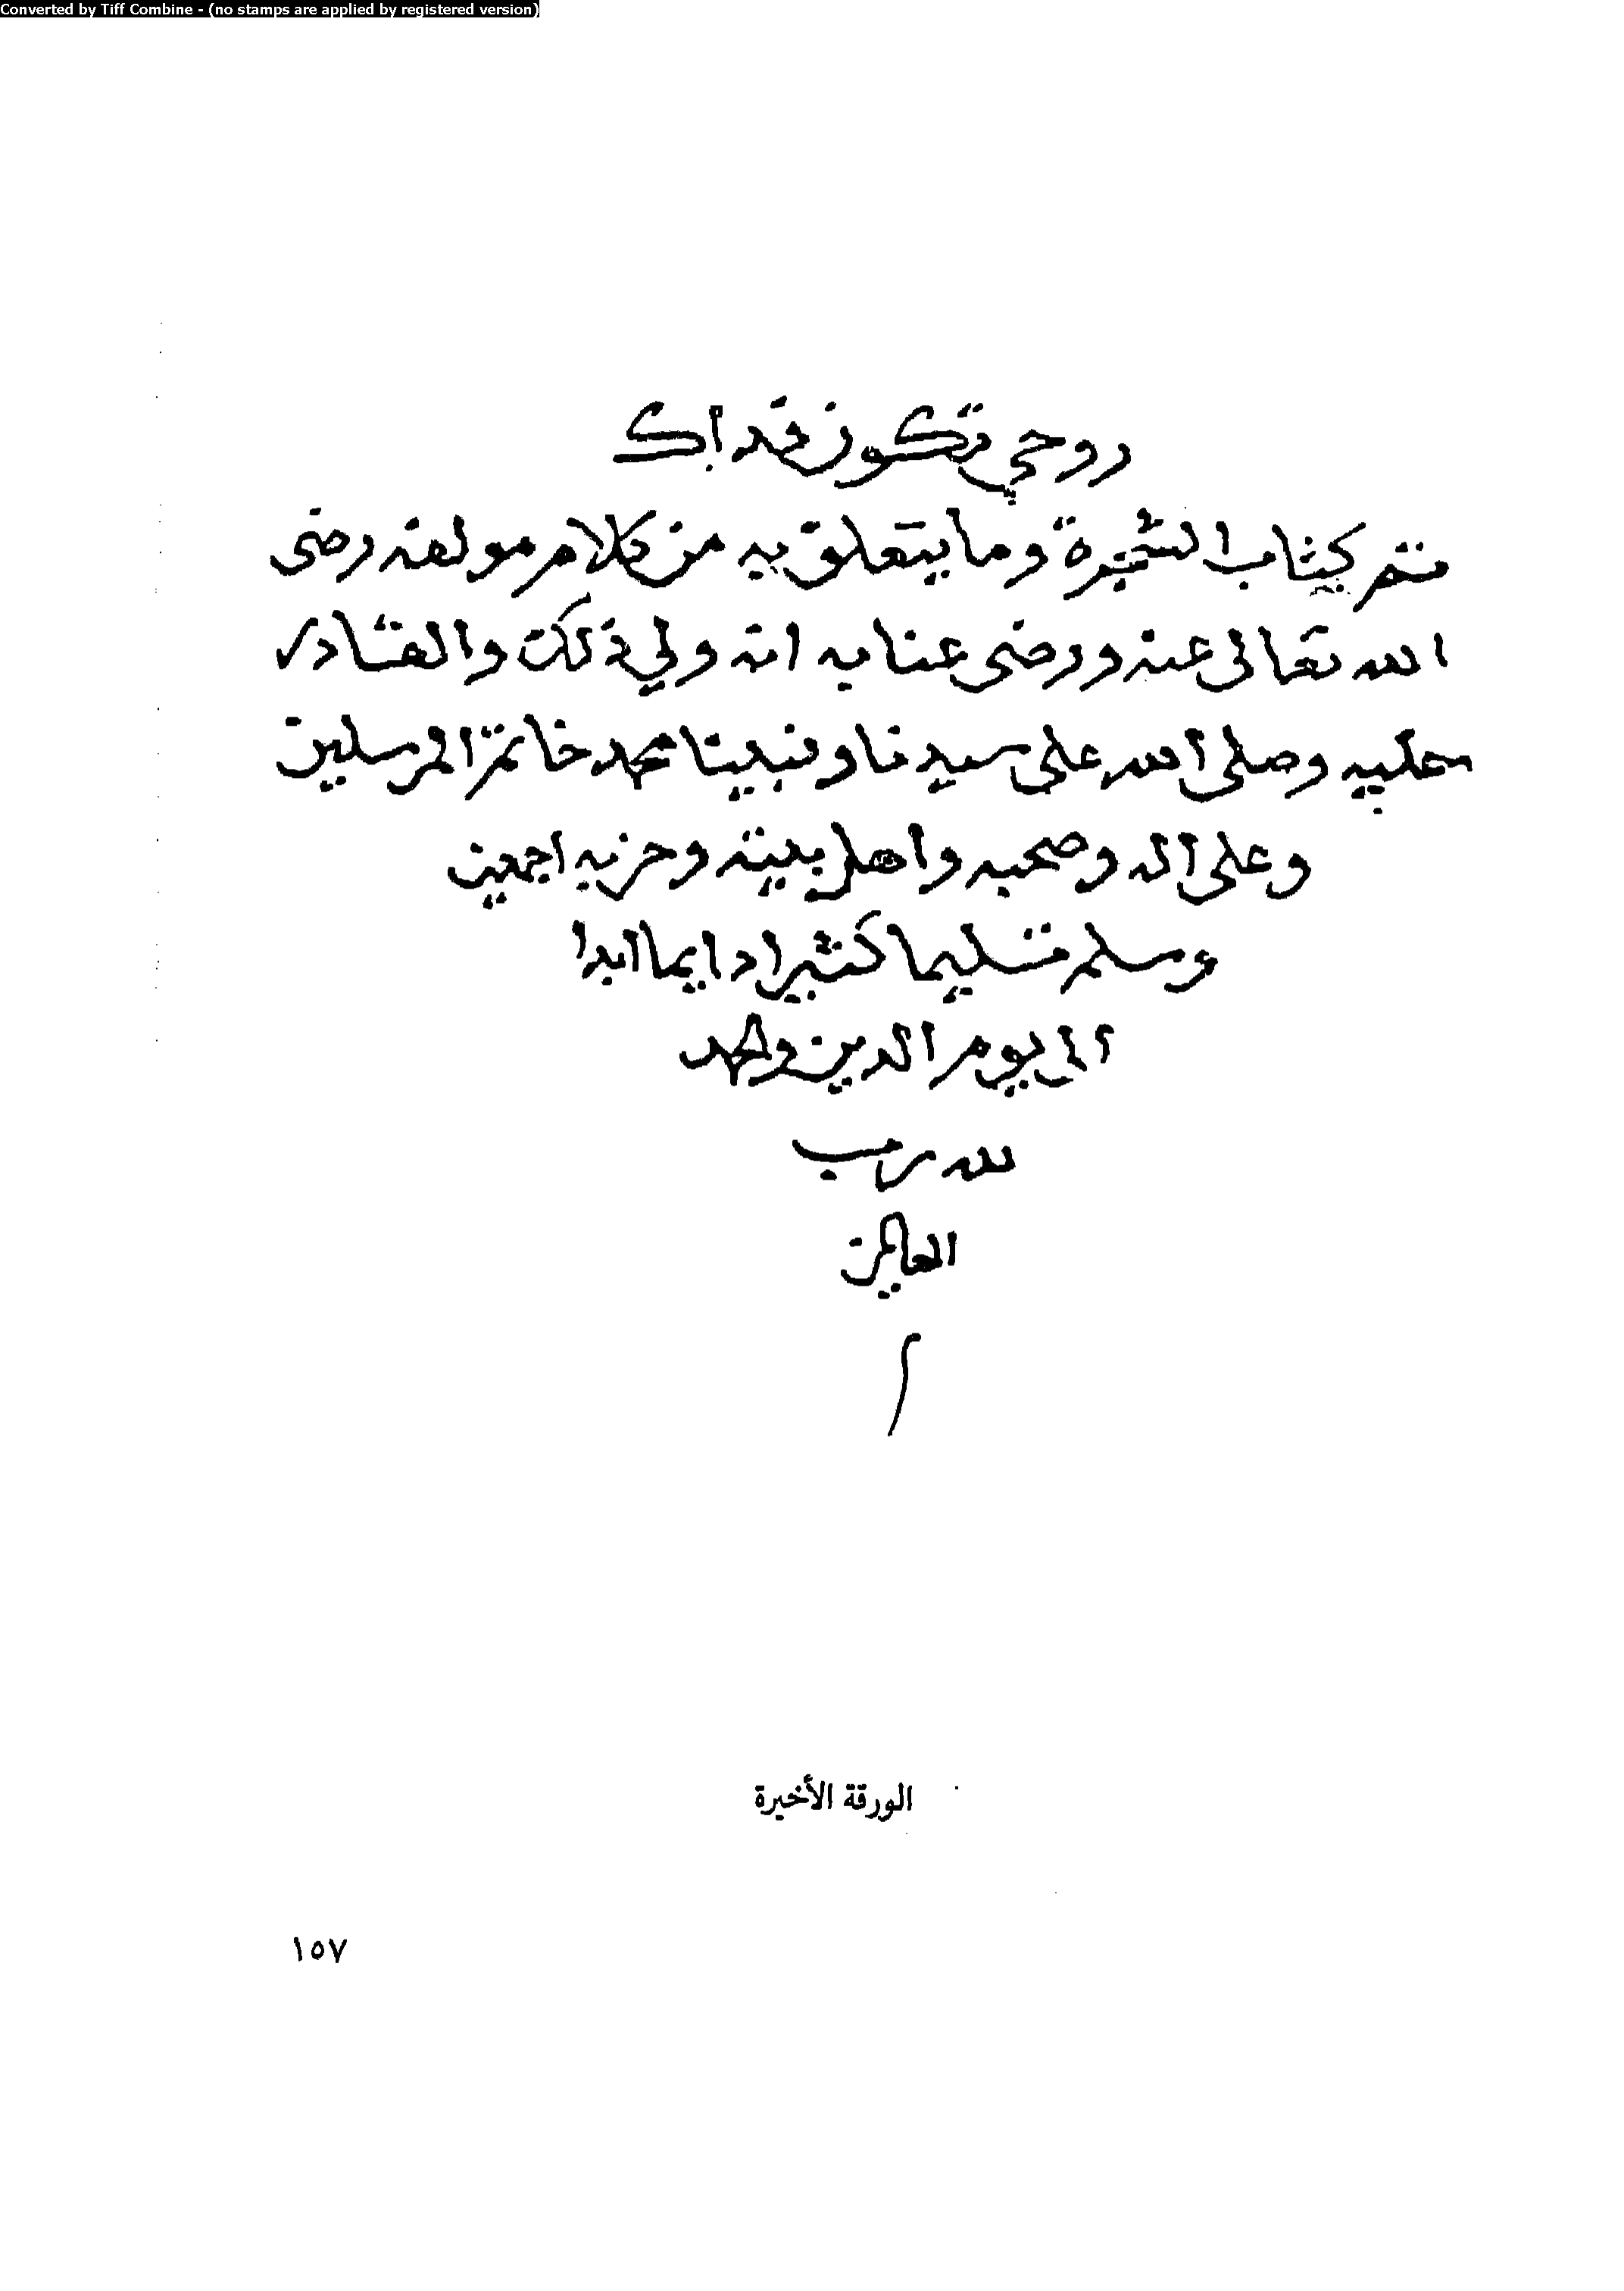 Converted by Tiff Combine - (no stamps are applied by registered version)
روحي تكون فداك
تم كتاب الشجرة وما يتعلق به من كلام مولفه رضى
الله تعالى عنه ورضى عنا به انه ولي ذلك والقادر
عليه وصلى الله على سيدنا ونبينا محمد خاتم المرسلين
وعلى اله وصحبه واهل بيته وحزبه اجمعين
وسلم تسليما كثيرا دايما ابدا
الى يوم الدين والحمد
لله رب
العالمين
م
الورقة الأخيرة
١٥٧